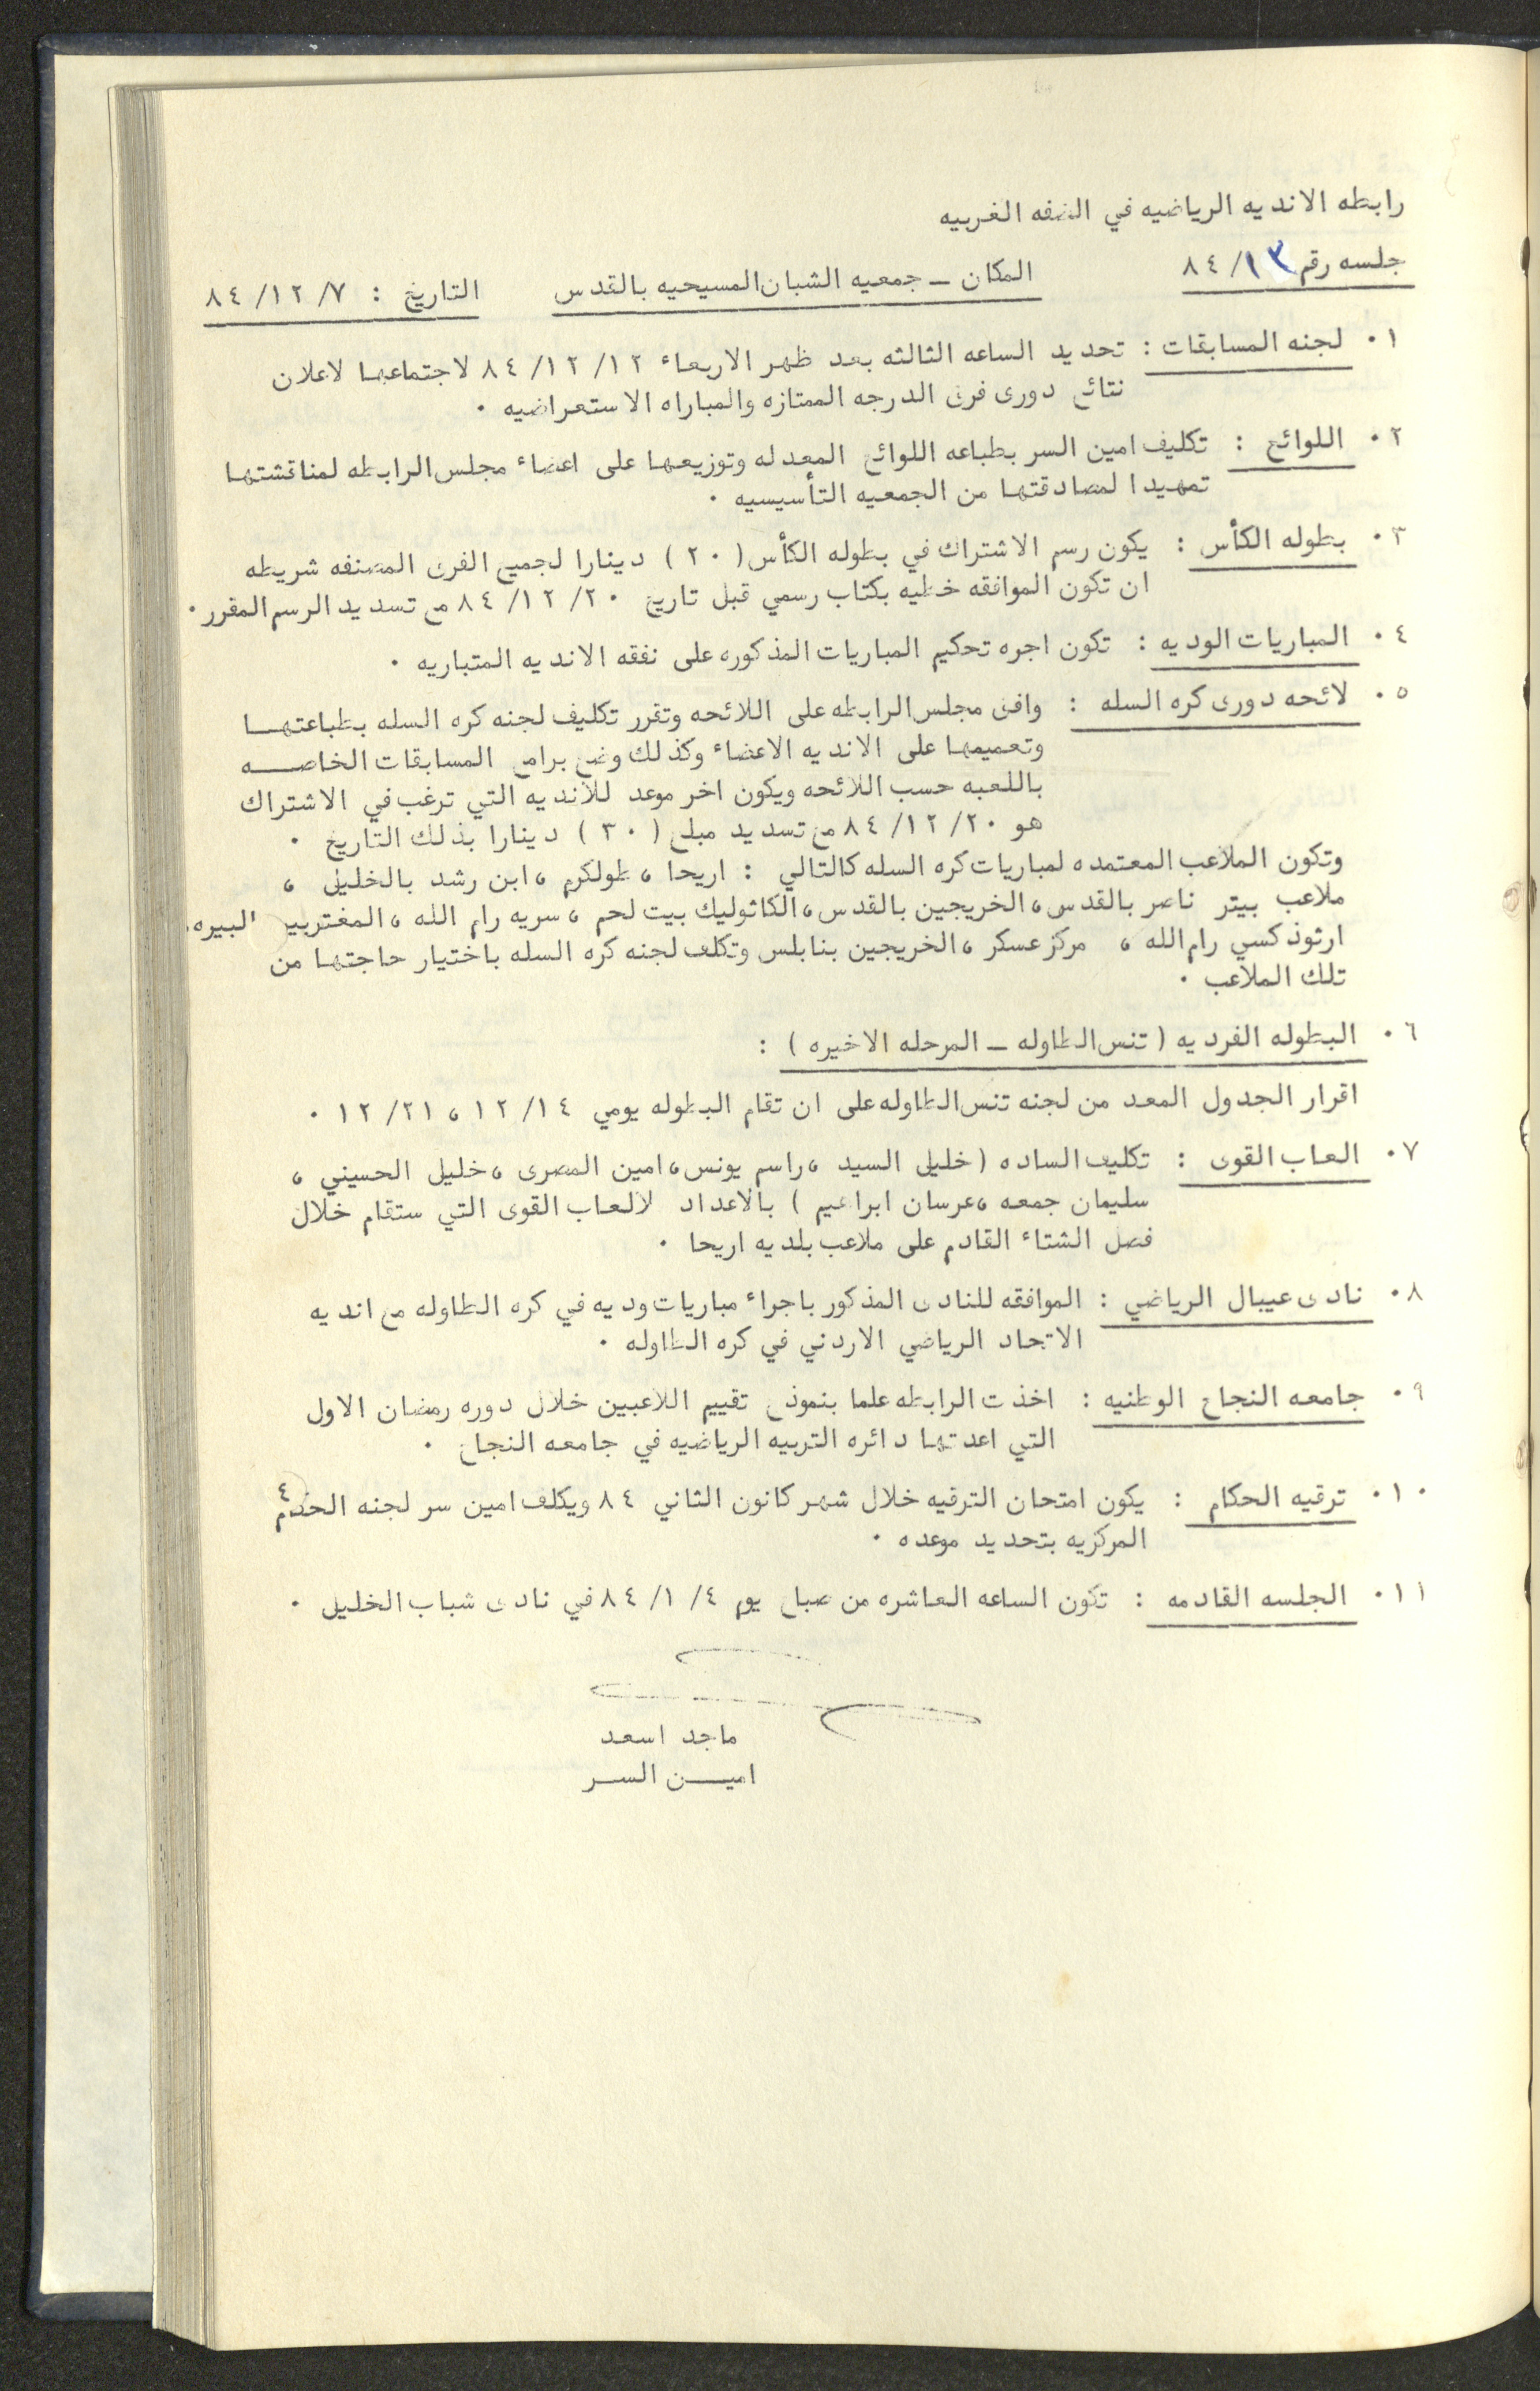 رابطه الانديه الرياضيه في الضفه الغربيه
جلسه رقم ١٣/ ٨٤ المكان ـ جمعيه الشبان المسيحيه بالقدس التاريخ : ٧/ ١٢/ ٨٤
١٠ لجنه المسابقات : تحديد الساعه الثالثه بعد ظهر الاربعاء ١٢/ ١٢/ ٨٤ لاجتماعها لاعلان
نتائج دورى فرق الدرجه الممتازه والمباراه الاستعراضيه ٠
٢٠ اللوائح : تكليف امين السر بطباعه اللوائح المعدله وتوزيعها على اعضاء مجلس الرابطه لمناقشتها
تمهيدا لمصادقتها من الجمعيه التأسيسيه ٠
٣٠ بطوله الكأس : يكون رسم الاشتراك في بطوله الكأس ( ٢٠ ) دينارا لجميع الفرق المصنفه شريطه
ان تكون الموافقه خطيه بكتاب رسمي قبل تاريخ ٢٠/ ١٢/ ٨٤ مع تسديد الرسم المقرر ٠
٤٠ المباريات الوديه : تكون اجره تحكيم المباريات المذكوره على نفقه الانديه المتباريه ٠
٥٠ لائحه دورى كره السله : وافق مجلس الرابطه على اللائحه وتقرر تكليف لجنه كره السله بطباعتهـــا
وتعميمها على الانديه الاعضاء وكذلك وضع برامج المسابقات الخاصـــه
باللعبه حسب اللائحه ويكون اخر موعد للأنديه التي ترغب في الاشتراك
هو ٢٠/ ١٢/ ٨٤ مع تسديد مبلغ ( ٣٠ ) دينارا بذلك التاريخ ٠
وتكون الملاعب المعتمده لمباريات كره السله كالتالي : اريحا ، طولكرم ، ابن رشد بالخليل ،
ملاعب بيتر ناصر بالقدس ، الخريجين بالقدس ، الكاثوليك بيت لحم ، سريه رام الله ، المغتربين البيره ،
ارثوذكسي رام الله ، مركز عسكر ، الخريجين بنابلس وتكلف لجنه كره السله باختيار حاجتها من
تلك الملاعب ٠
٦٠ البطوله الفرديه ( تنس الطاوله ـ المرحله الاخيره ) :
اقرار الجدول المعد من لجنه تنس الطاوله على ان تقام البطوله يومي ١٤/ ١٢ ، ٢١/ ١٢ ٠
٧٠ العاب القوى : تكليف الساده ( خليل السيد ، راسم يونس ، امين المصرى ، خليل الحسيني ،
سليمان جمعه ، عرسان ابراهيم ) بالاعداد لالعاب القوى التي ستقام خلال
فصل الشتاء القادم على ملاعب بلديه اريحا ٠
٨٠ نادى عيبال الرياضي : الموافقه للنادى المذكور باجراء مباريات وديه في كره الطاوله مع انديه
الاتحاد الرياضي الاردني في كره الطاوله ٠
٩٠ جامعه النجاح الوطنيه : اخذت الرابطه علما بنموذج تقييم اللاعبين خلال دوره رمضان الاول
التي اعدتها دائره التربيه الرياضيه في جامعه النجاح ٠
١٠٠ ترقيه الحكام : يكون امتحان الترقيه خلال شهر كانون الثاني ٨٤ ويكلف امين سر لجنه الحكام
المركزيه بتحديد موعده ٠
١١٠ الجلسه القادمه : تكون الساعه العاشره من صباح يوم ٤/ ١/ ٨٤ في نادى شباب الخليل ٠
ماجد اسعد
اميـــن الســـر